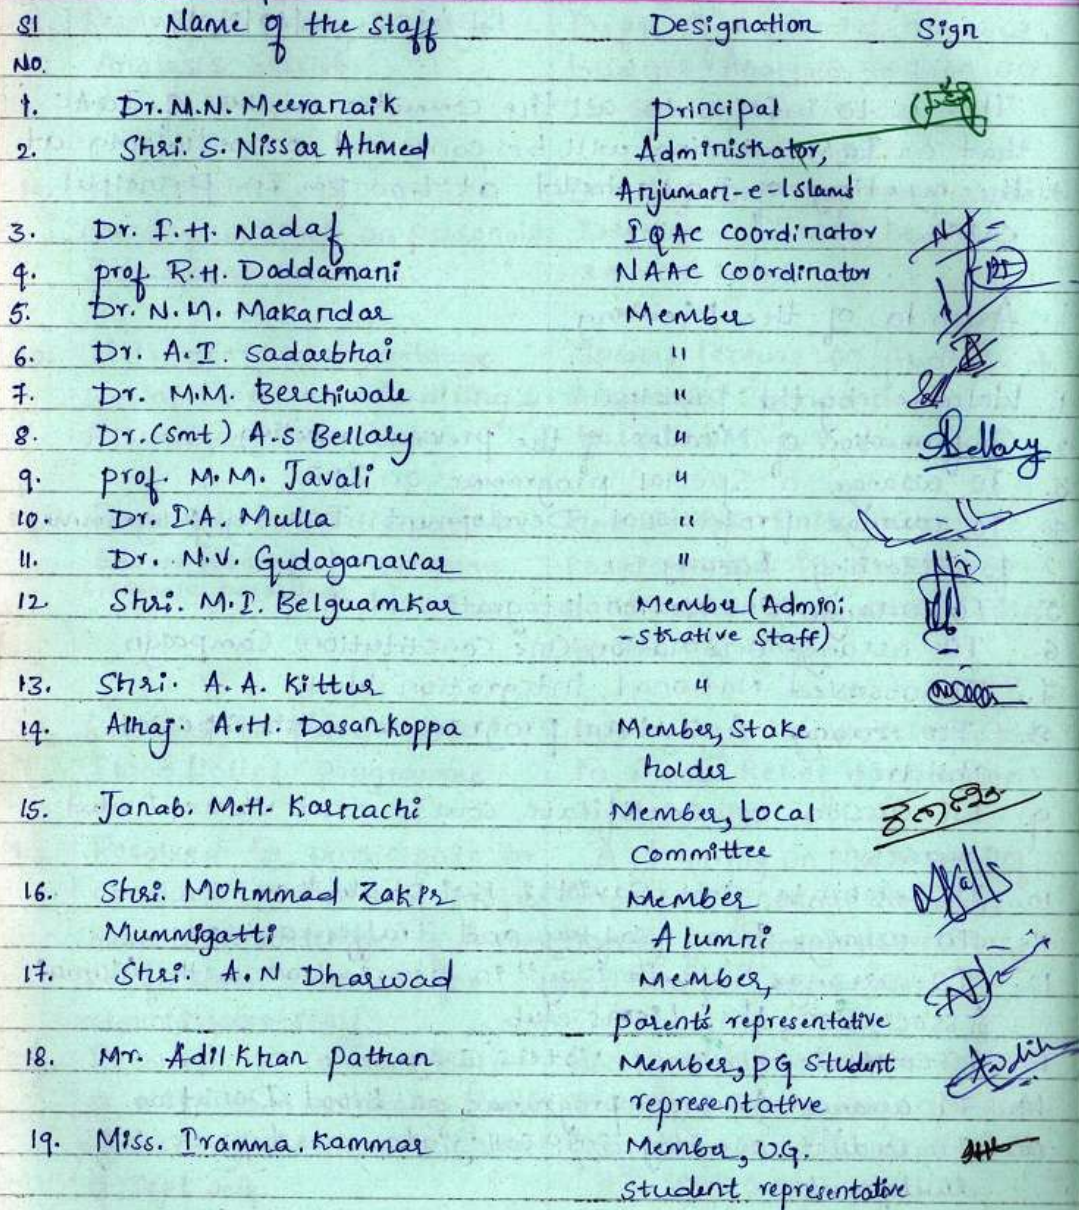 Sl Name of the Staff Designation Sign
No.
1. Dr. M.N. Meeranaik Principal
2. Shri. S. Nissar Ahmed Administrator,
Anjuman-e-Islam's
3. Dr. I.H. Nadaf IQAC Coordinator
4. Prof. R.H. Daddamani NAAC Coordinator
5. Dr. N.M. Makandar Member
6. Dr. A.I. Sadarbhai "
7. Dr. M.M. Berchiwale "
8. Dr. (Smt) A.S Bellary " ASBellary
9. Prof. M.M. Javali "
10. Dr. I.A. Mulla "
11. Dr. N.V. Gudaganavar "
12 Shri. M.I. Belguamkar Member (Admini
-strative Staff)
13. Shri. A.A. Kittur "
14. Alhaj. A.H. Dasankoppa Member, Stake
holder
15. Janab. M.H. Karnachi Member, Local
Committee
16. Shri. Mohmmad Zakir Member
Mummigatti Alumni
17. Shri. A.N Dharwad Member,
parent's representative
18. Mr. Adil Khan Pathan Member, PG Student
representative
19. Miss. Iramma. Kammar Member, U.G.
Student representative